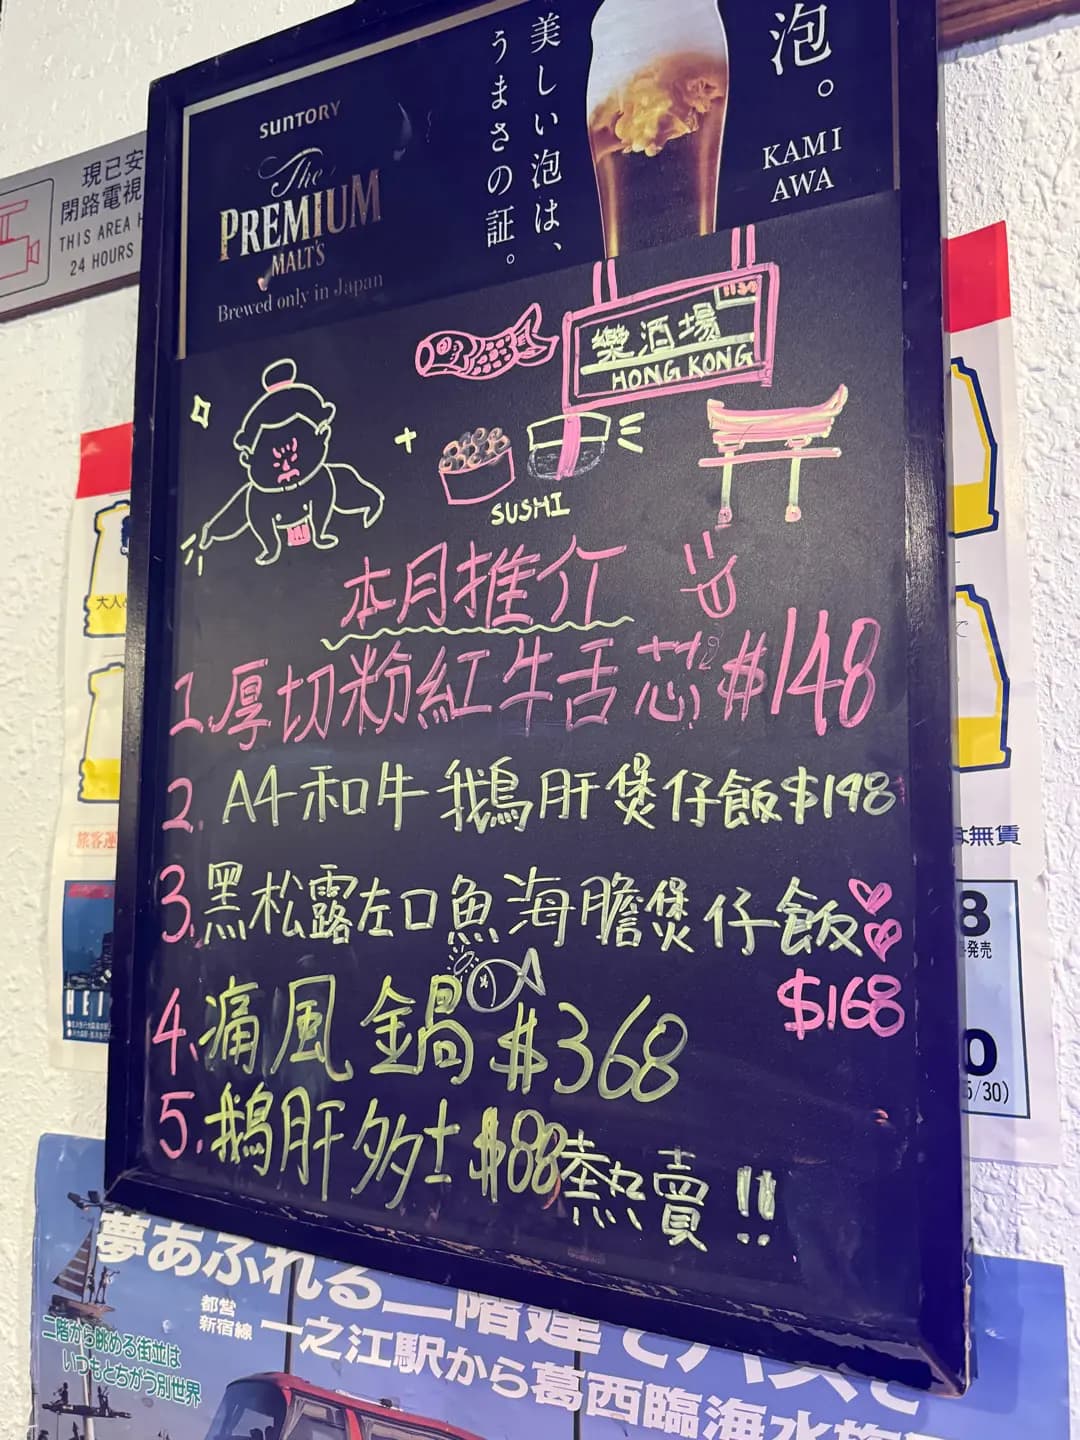 SUNTORY
The
PREMIUM
MALT'S
Brewed only in Japan
美しい泡は、
うまさの証。
泡。
KAMI
AWA
現已安
閉路電視
THIS AREA H
24 HOURS
樂酒場
HONG KONG
SUSHI
本月推介
1.厚切粉紅牛舌芯 $148
2. A4和牛鵝肝煲仔飯$198
3.黑松露左口魚海膽煲仔飯
$168
4.痛風鍋 $368
5.鵝肝多士 $88熱賣!!
大人
旅客運
は無賃
8
発売
0
5/30)
夢あふれる二階建てバスで
都営
新宿線
一之江駅から葛西臨海水族
二階から眺める街並は
いつもとちがう別世界